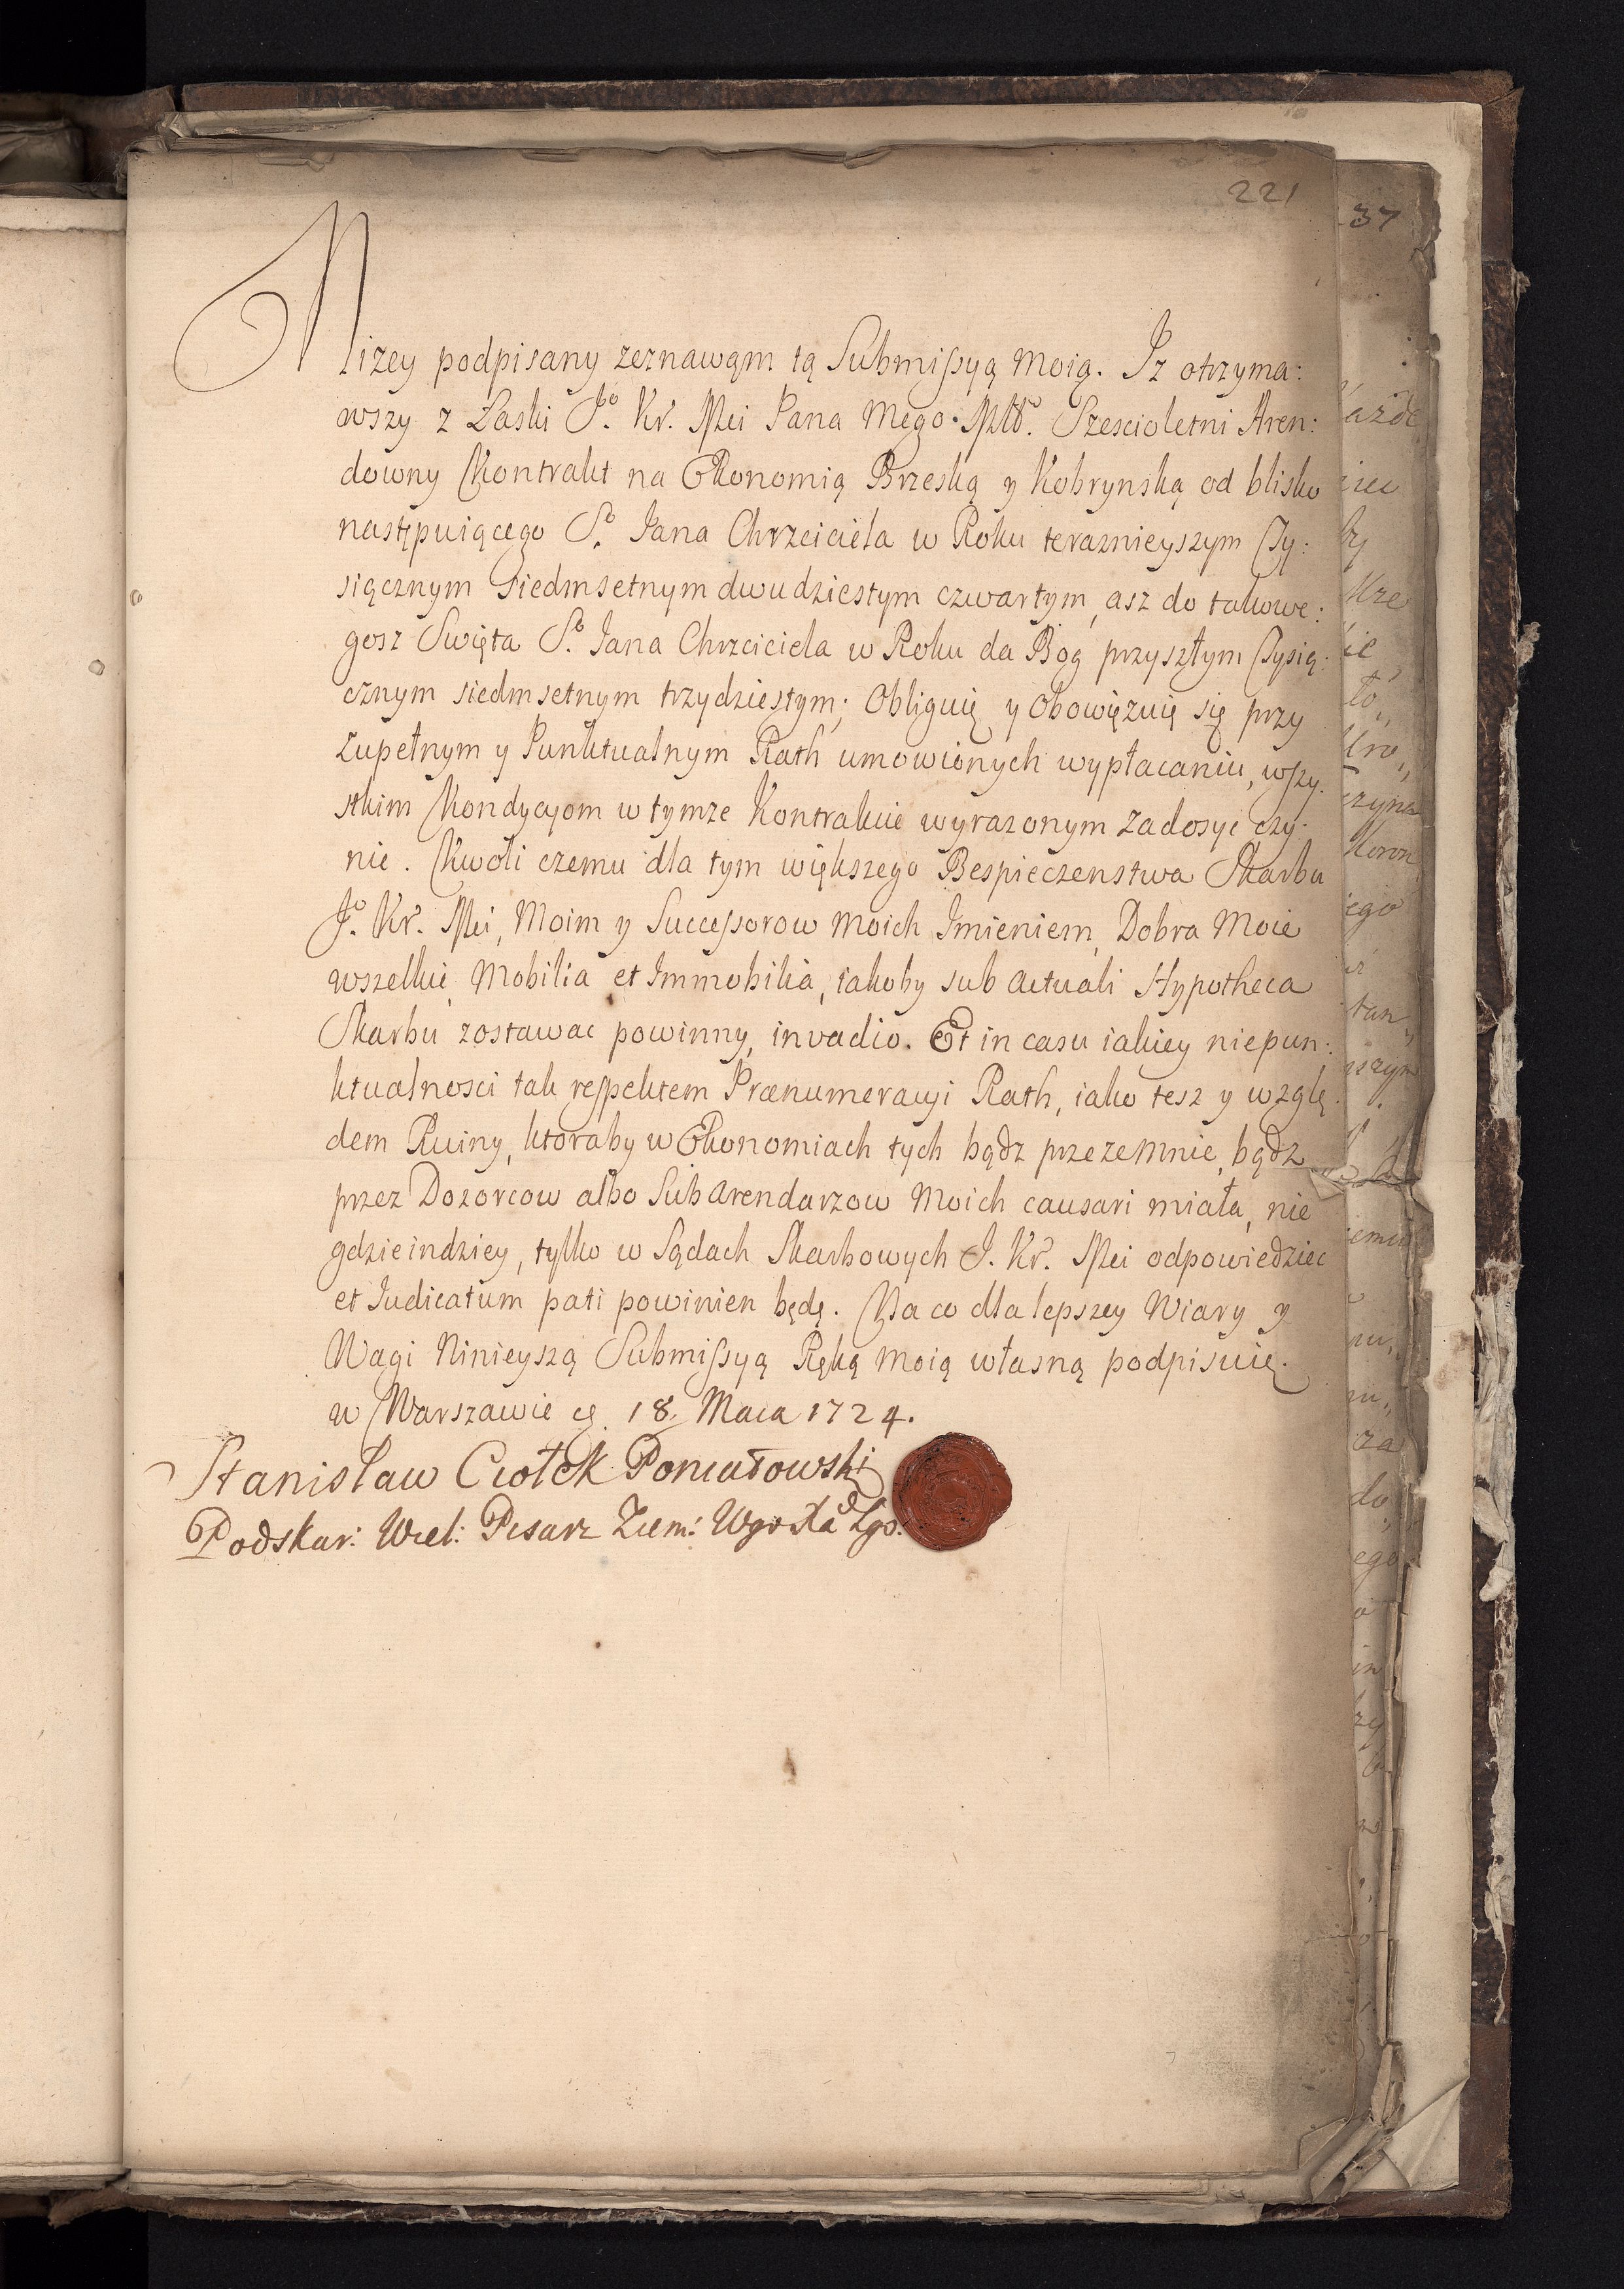 221
37
Niżey podpisany zeznawąm tą Submissyą Moią. Iz otrzyma:
wszy z Łaski Jº. Kr. Mei Pana Mego Młº. Szescioletni Aren:
downy Kontrakt na Ekonomią Brzeską y Kobrynską od blisko
następuiącego Sº. Jana Chrzciciela w Roku teraznieyszym Ty:
siącznym siedmsetnym dwudziestym czwartym, asz do takowe:
gosz Swięta Sº. Jana Chrzciciela w Roku da Bog przyszłym Tysią:
cznym siedmsetnym trzydziestym; Obliguię y Obowęzuię się przy
zupełnym y Punktualnym Rath umowionych wypłacaniu, wszy:
stkim Kondycyom w tymze Kontrakcie wyrazonym zadosyc czy:
nic. Kwoli czemu dla tym większego Bespieczenstwa Skarbu
Jº. Kr. Mei, Moim y Successorow Moich Imieniem, Dobra Moie
wszelkie, Mobilia et Immobilia, iakoby sub actuali Hypotheca
Skarbu zostawac powinny, in vadio. Et in casu iakiey niepun:
ktualnosci tak respektem Prænumeracyi Rath, iako tesz y wzglę:
dem Ruiny, ktoraby w Ekonomiach tych bądz przezemnie, bądz
przez Dozorcow albo Subarendarzow Moich causari miała, nie
gdzieindziey, tylko w Sądach Skarbowych J. Kr. Mei odpowiedziec
et Iudicatum pati powinien będę. Na co dla lepszey Wiary y
Wagi Ninieyszą Submissyą Ręką moią własną podpisuię.
w Warszawie 18. Maia 1724.
Stanisław Ciołek Poniatowski
Podskar: Wiel: Pisarz Ziem: Wgo Xa Lgo.